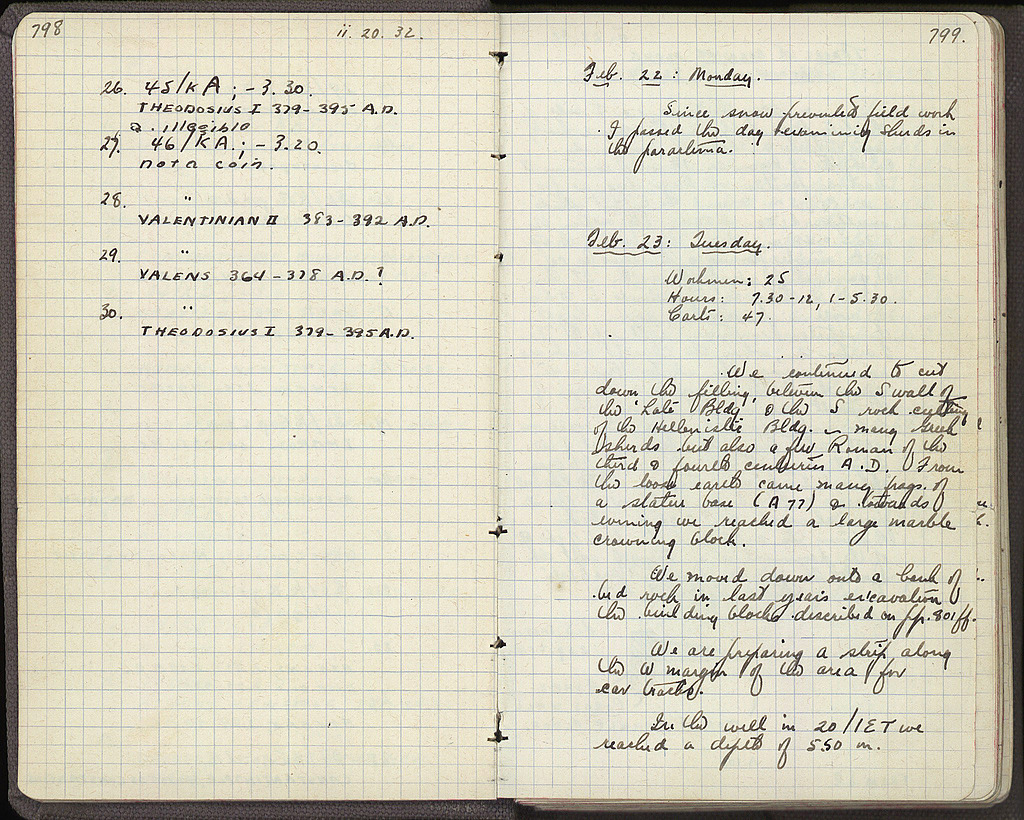 798
ii. 20. 32.
26. 45/KA ; -3.30.
THEODOSIUS I 379-395 A.D.
a. illegible
27. 46/KA.; -3.20.
not a coin.
28. "
VALENTINIAN II 383-392 A.D.
29. "
VALENS 364-378 A.D.?
30. "
THEODOSIUS I 379-395 A.D.
799.
Feb. 22 : Monday.
Since snow prevented field work
I passed the day reexamining sherds in
the paraetima.
Feb. 23 : Tuesday.
Workmen: 25
Hours: 7.30-12, 1-5.30.
Carts: 47.
We continued to cut
down the filling, between the S wall of
the Late Bldg & the S rock cutting
of the Hellenistic Bldg. many Greek
sherds but also a few Roman of the
third & fourth centuries A.D. From
the loose earth came many frags. of
a statue base (A 77) & towards
evening we reached a large marble
crowning block.
We moved down onto a bank of
bed rock in last year's excavation
the building blocks described on pp. 801 ff.
We are preparing a strip along
the W margin of the area for
car tracks.
In the well in 20/IET we
reached a depth of 5.50 m.